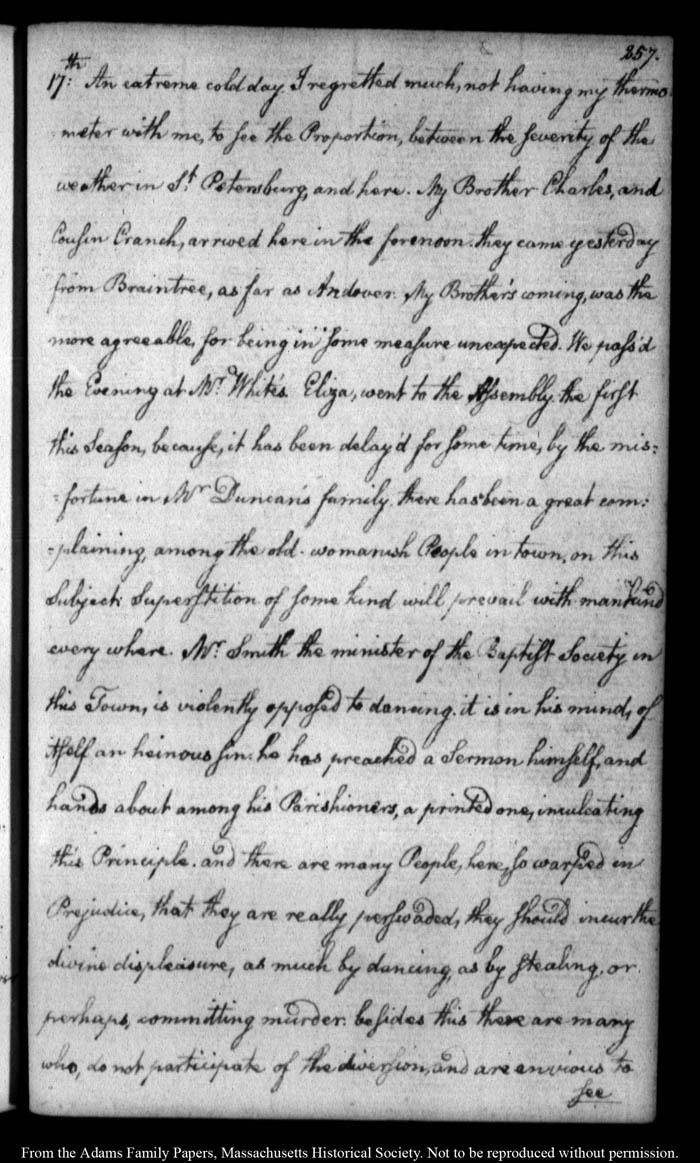 257.
17th: An extreme cold day. I regretted much, not having my thermo
meter with me, to see the Proportion, between the severity of the
weather in St Petersburg, and here. My Brother Charles, and
Cousin Cranch, arrived here in the forenoon. they came yesterday
from Braintree, as far as Andover. My Brother's coming, was the
more agreeable, for being in some measure unexpected. We pass'd
the Evening at Mr. White's. Eliza, went to the Assembly. the first
this Season, because, it has been delay'd for some time, by the mis=
=fortune in Mr Duncan's family. there has been a great com:
=plaining, among the old-womanish People in town, on this
Subject: Superstition of some kind will prevail with mankind
every where. Mr. Smith the minister of the Baptist Society in
this Town, is violently opposed to dancing. it is in his mind, of
itself an heinous sin. he has preached a Sermon himself, and
hands about among his Parishioners, a printed one, inculcating
this Principle. and there are many People, here, so warped in
Prejudice, that they are really perswaded, they should incur the
divine displeasure, as much by dancing, as by stealing, or
perhaps, committing murder. besides this there are many
who, do not participate of the diversion, and are envious to
see
From the Adams Family Papers, Massachusetts Historical Society. Not to be reproduced without permission.